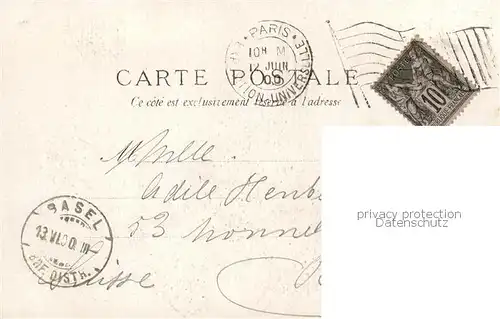 PARIS
EXPOSITION UNIVERSELLE
10H M
12 JUIN
00
CARTE POSTALE
Ce côté est exclusivement réservé à l'adresse
10
Mlle
Adile
53
Suisse
BASEL
13.VI.00. III
BRF. DISTR.
privacy protection
Datenschutz